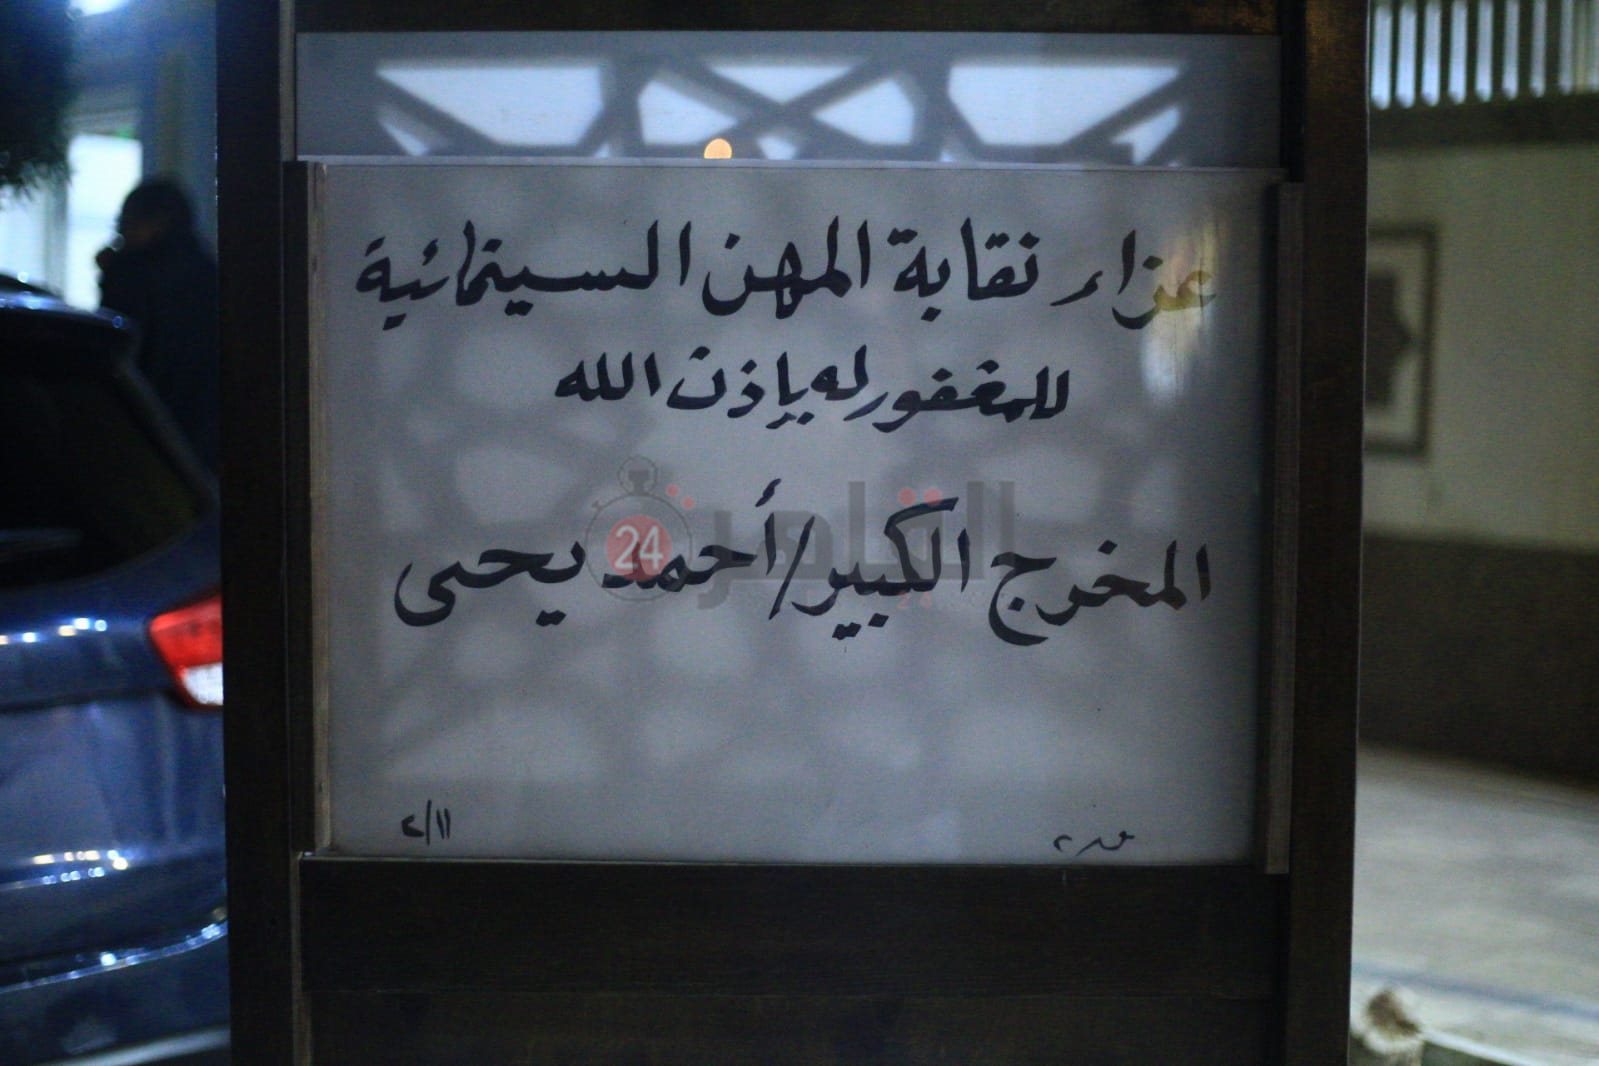 عزاء نقابة المهن السينمائية
للمغفور له بإذن الله
المخرج الكبير/أحمد يحيى
القاهرة 24
٢/١١